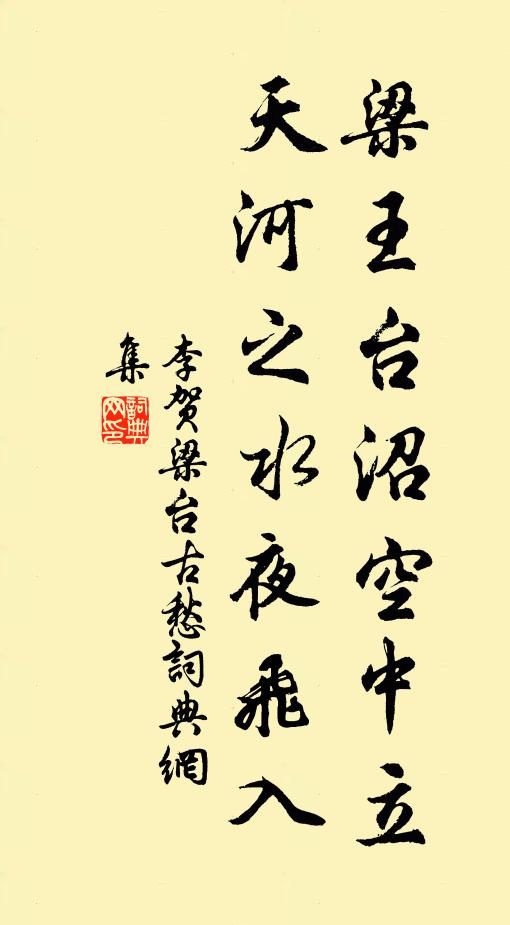 梁王台沼空中立
天河之水夜飛入
李贺梁台古愁詞典網
集
詞典
网印